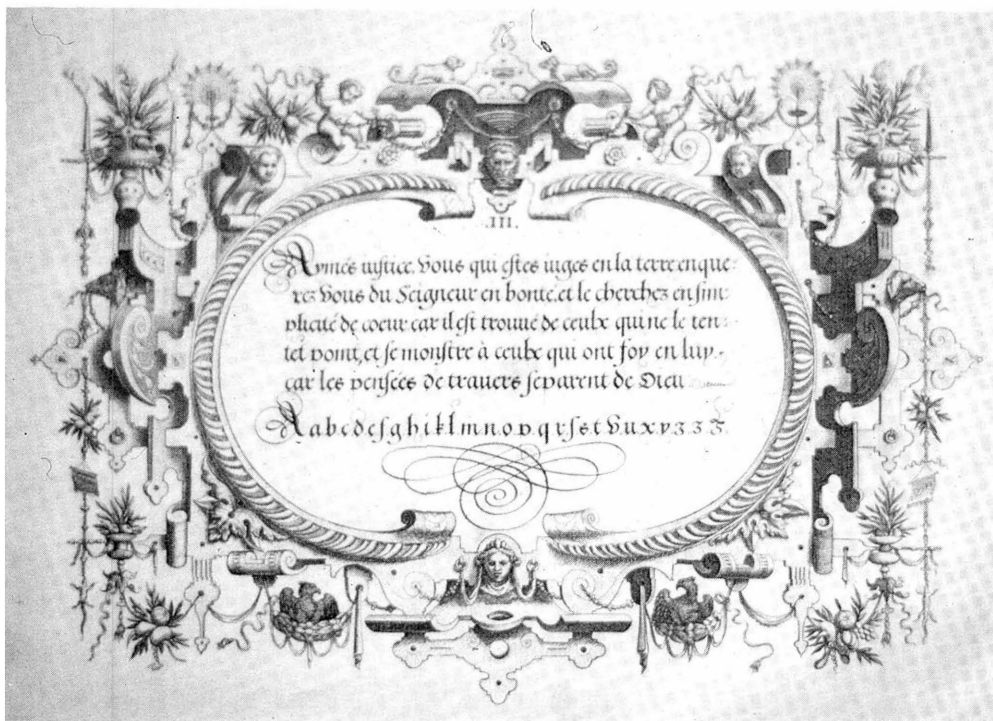 .III.
Aymés iustice, Vous qui estes iuges en la terre enque-
rez Vous du Seigneur en bonte, et le cherchez en sim-
plicité de coeur, car il est trouué de ceulx qui ne le ten-
tet point, et se monstre à ceulx qui ont foy en luy,
car les pensées de trauers separent de Dieu
A a b c d e f g h i k l m n o p q r s s t V u x y z z z